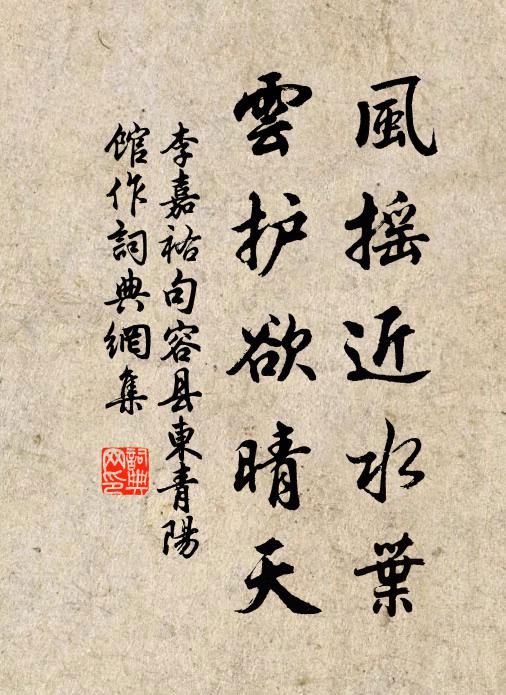 風摇近水葉
雲护欲晴天
李嘉祐句容县東青陽
館作詞典網集
詞典网印